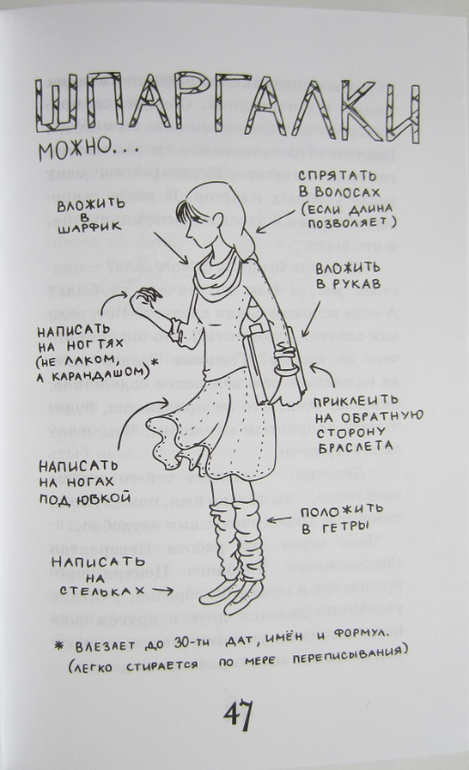 ШПАРГАЛКИ
МОЖНО...
СПРЯТАТЬ
В ВОЛОСАХ
(ЕСЛИ ДЛИНА
ПОЗВОЛЯЕТ)
ВЛОЖИТЬ
В
ШАРФИК
ВЛОЖИТЬ
В РУКАВ
НАПИСАТЬ
НА НОГТЯХ
(НЕ ЛАКОМ,
А КАРАНДАШОМ)*
ПРИКЛЕИТЬ
НА ОБРАТНУЮ
СТОРОНУ
БРАСЛЕТА
НАПИСАТЬ
НА НОГАХ
ПОД ЮБКОЙ
ПОЛОЖИТЬ
В ГЕТРЫ
НАПИСАТЬ
НА
СТЕЛЬКАХ
* ВЛЕЗАЕТ ДО 30-ТИ ДАТ, ИМЁН И ФОРМУЛ.
(ЛЕГКО СТИРАЕТСЯ ПО МЕРЕ ПЕРЕПИСЫВАНИЯ)
47